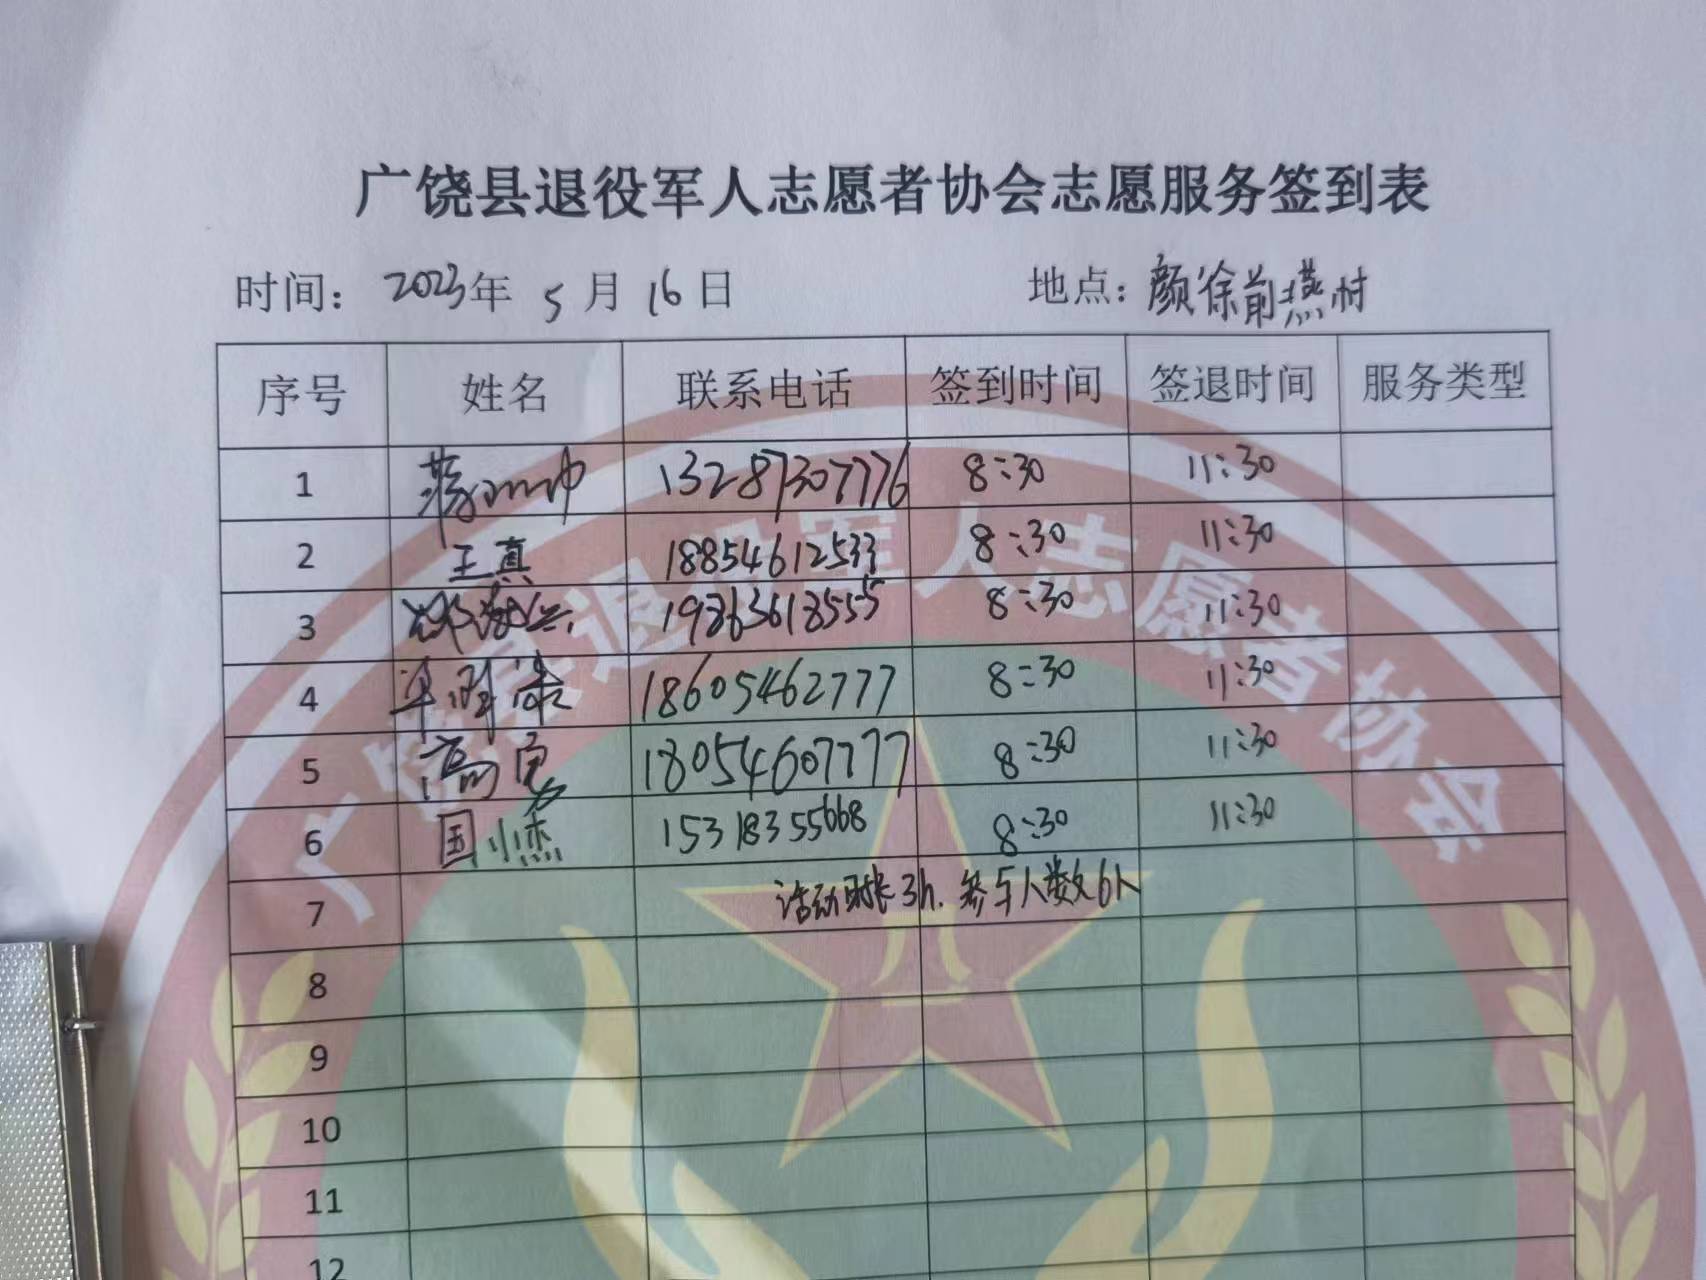 广饶县退役军人志愿者协会志愿服务签到表
时间： 2023年 5 月 16 日 地点：颜徐前燕村
序号 姓名 联系电话 签到时间 签退时间 服务类型
1 13287307776 8:30 11:30
2 王真 18854612533 8:30 11:30
3 19863618555 8:30 11:30
4 18605462777 8:30 11:30
5 高勇 18054607777 8:30 11:30
6 国小杰 15318355668 8:30 11:30
7 活动时长3h. 参与人数6人
8
9
10
11
12
广饶县退役军人志愿者协会
八一